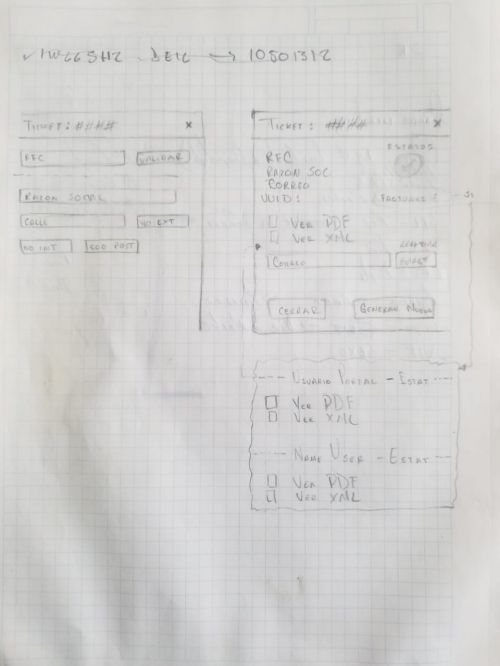 → 10501312
TICKET: ####  X
RFC  VALIDAR
RAZON SOCIAL
CALLE  NO EXT
NO INT  COD POST
TICKET: ####  X
ESTATUS
RFC
RAZON SOC
CORREO
UUID:
VER PDF
VER XML
CORREO
CERRAR  GENERAR NUEVO
USUARIO PORTAL - ESTAT
VER PDF
VER XML
NAME USER - ESTAT
VER PDF
VER XML